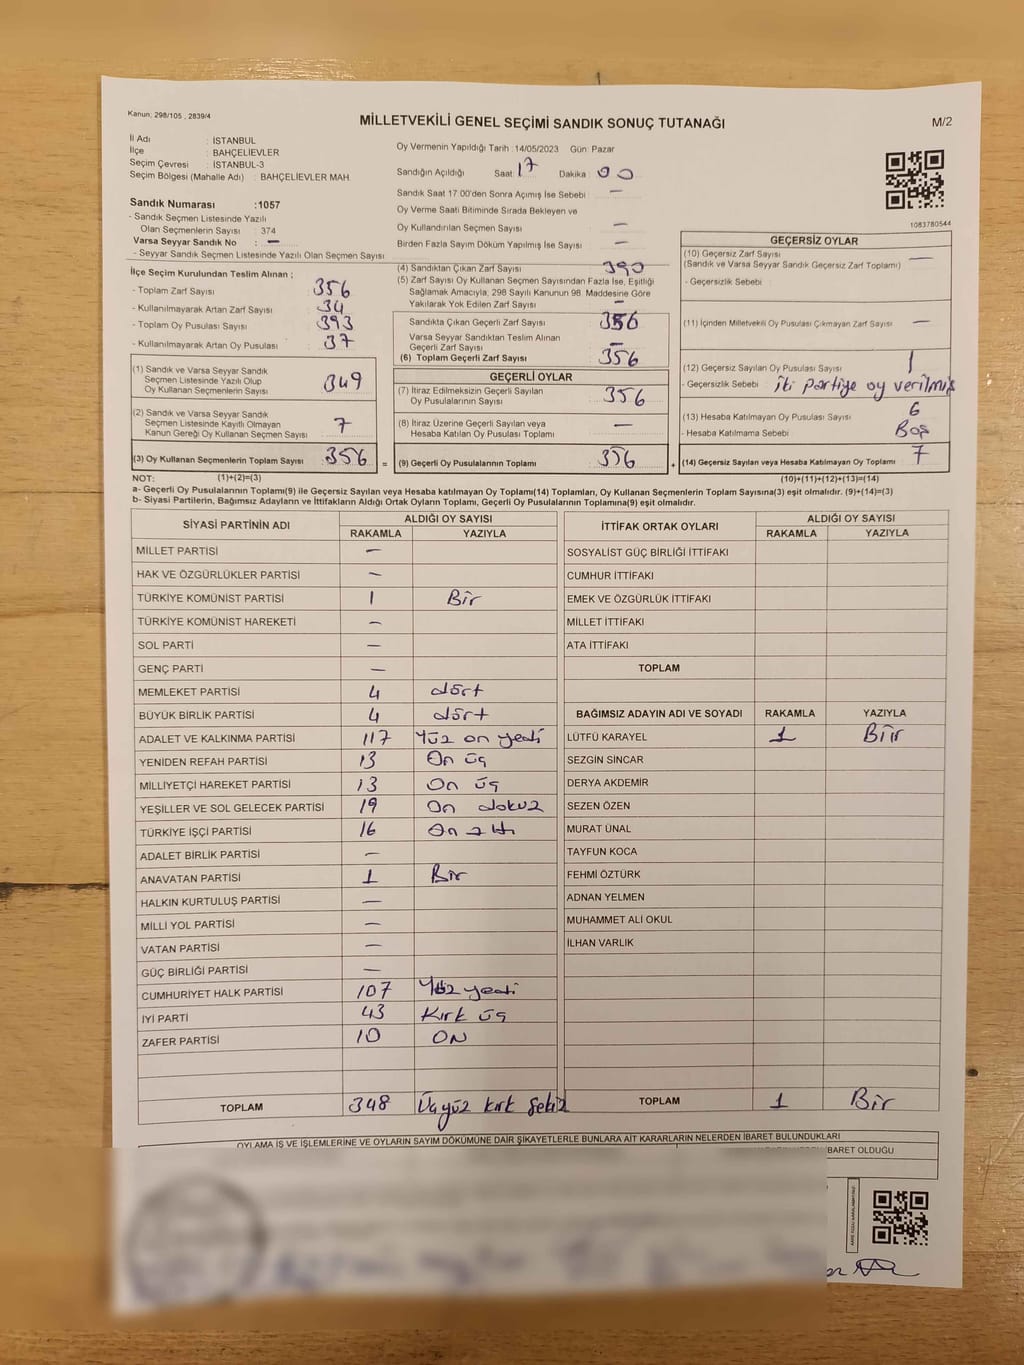 Kanun; 298/105 , 2839/4
MİLLETVEKİLİ GENEL SEÇİMİ SANDIK SONUÇ TUTANAĞI
M/2
İl Adı : İSTANBUL
İlçe : BAHÇELİEVLER
Seçim Çevresi : İSTANBUL-3
Seçim Bölgesi (Mahalle Adı) : BAHÇELİEVLER MAH.
Sandık Numarası :1057
- Sandık Seçmen Listesinde Yazılı
Olan Seçmenlerin Sayısı : 374
Varsa Seyyar Sandık No : –
- Seyyar Sandık Seçmen Listesinde Yazılı Olan Seçmen Sayısı
Oy Vermenin Yapıldığı Tarih :14/05/2023 Gün: Pazar
Sandığın Açıldığı Saat: 17 Dakika: 00
Sandık Saat 17.00'den Sonra Açımış İse Sebebi –
Oy Verme Saati Bitiminde Sırada Bekleyen ve
Oy Kullandırılan Seçmen Sayısı –
Birden Fazla Sayım Döküm Yapılmış İse Sayısı –
1083780544
İlçe Seçim Kurulundan Teslim Alınan ;
- Toplam Zarf Sayısı 356
- Kullanılmayarak Artan Zarf Sayısı 34
- Toplam Oy Pusulası Sayısı 393
- Kullanılmayarak Artan Oy Pusulası 37
(1) Sandık ve Varsa Seyyar Sandık
Seçmen Listesinde Yazılı Olup
Oy Kullanan Seçmenlerin Sayısı 349
(2) Sandık ve Varsa Seyyar Sandık
Seçmen Listesinde Kayıtlı Olmayan
Kanun Gereği Oy Kullanan Seçmen Sayısı 7
(3) Oy Kullanan Seçmenlerin Toplam Sayısı 356
=
(4) Sandıktan Çıkan Zarf Sayısı 390
(5) Zarf Sayısı Oy Kullanan Seçmen Sayısından Fazla İse, Eşitliği
Sağlamak Amacıyla; 298 Sayılı Kanunun 98. Maddesine Göre
Yakılarak Yok Edilen Zarf Sayısı –
Sandıkta Çıkan Geçerli Zarf Sayısı 356
Varsa Seyyar Sandıktan Teslim Alınan
Geçerli Zarf Sayısı –
(6) Toplam Geçerli Zarf Sayısı 356
GEÇERLİ OYLAR
(7) İtiraz Edilmeksizin Geçerli Sayılan
Oy Pusulalarının Sayısı 356
(8) İtiraz Üzerine Geçerli Sayılan veya
Hesaba Katılan Oy Pusulası Toplamı –
(9) Geçerli Oy Pusulalarının Toplamı 356
+
GEÇERSİZ OYLAR
(10) Geçersiz Zarf Sayısı –
(Sandık ve Varsa Seyyar Sandık Geçersiz Zarf Toplamı)
- Geçersizlik Sebebi
(11) İçinden Milletvekili Oy Pusulası Çıkmayan Zarf Sayısı –
(12) Geçersiz Sayılan Oy Pusulası Sayısı 1
- Geçersizlik Sebebi : iki partiye oy verilmiş
(13) Hesaba Katılmayan Oy Pusulası Sayısı 6
- Hesaba Katılmama Sebebi : Boş
(14) Geçersiz Sayılan veya Hesaba Katılmayan Oy Pusulası Toplamı 7
NOT: (1)+(2)=(3)
(10)+(11)+(12)+(13)=(14)
a- Geçerli Oy Pusulalarının Toplamı(9) ile Geçersiz Sayılan veya Hesaba katılmayan Oy Toplamı(14) Toplamları, Oy Kullanan Seçmenlerin Toplam Sayısına(3) eşit olmalıdır. (9)+(14)=(3)
b- Siyasi Partilerin, Bağımsız Adayların ve İttifakların Aldığı Ortak Oyların Toplamı, Geçerli Oy Pusulalarının Toplamına(9) eşit olmalıdır.
SİYASİ PARTİNİN ADI ALDIĞI OY SAYISI
RAKAMLA YAZIYLA
MİLLET PARTİSİ –
HAK VE ÖZGÜRLÜKLER PARTİSİ –
TÜRKİYE KOMÜNİST PARTİSİ 1 Bir
TÜRKİYE KOMÜNİST HAREKETİ –
SOL PARTİ –
GENÇ PARTİ –
MEMLEKET PARTİSİ 4 dört
BÜYÜK BİRLİK PARTİSİ 4 dört
ADALET VE KALKINMA PARTİSİ 117 Yüz on yedi
YENİDEN REFAH PARTİSİ 13 On üç
MİLLİYETÇİ HAREKET PARTİSİ 13 On üç
YEŞİLLER VE SOL GELECEK PARTİSİ 19 On dokuz
TÜRKİYE İŞÇİ PARTİSİ 16 On altı
ADALET BİRLİK PARTİSİ –
ANAVATAN PARTİSİ 1 Bir
HALKIN KURTULUŞ PARTİSİ –
MİLLİ YOL PARTİSİ –
VATAN PARTİSİ –
GÜÇ BİRLİĞİ PARTİSİ –
CUMHURİYET HALK PARTİSİ 107 Yüz yedi
İYİ PARTİ 43 Kırk üç
ZAFER PARTİSİ 10 ON
TOPLAM 348 Üçyüz kırk sekiz
İTTİFAK ORTAK OYLARI ALDIĞI OY SAYISI
RAKAMLA YAZIYLA
SOSYALİST GÜÇ BİRLİĞİ İTTİFAKI
CUMHUR İTTİFAKI
EMEK VE ÖZGÜRLÜK İTTİFAKI
MİLLET İTTİFAKI
ATA İTTİFAKI
TOPLAM
BAĞIMSIZ ADAYIN ADI VE SOYADI RAKAMLA YAZIYLA
LÜTFÜ KARAYEL 1 Bir
SEZGİN SİNCAR
DERYA AKDEMİR
SEZEN ÖZEN
MURAT ÜNAL
TAYFUN KOCA
FEHMİ ÖZTÜRK
ADNAN YELMEN
MUHAMMET ALİ OKUL
İLHAN VARLIK
TOPLAM 1 Bir
OYLAMA İŞ VE İŞLEMLERİNE VE OYLARIN SAYIM DÖKÜMÜNE DAİR ŞİKAYETLERLE BUNLARA AİT KARARLARIN NELERDEN İBARET BULUNDUKLARI
BARET OLDUĞU